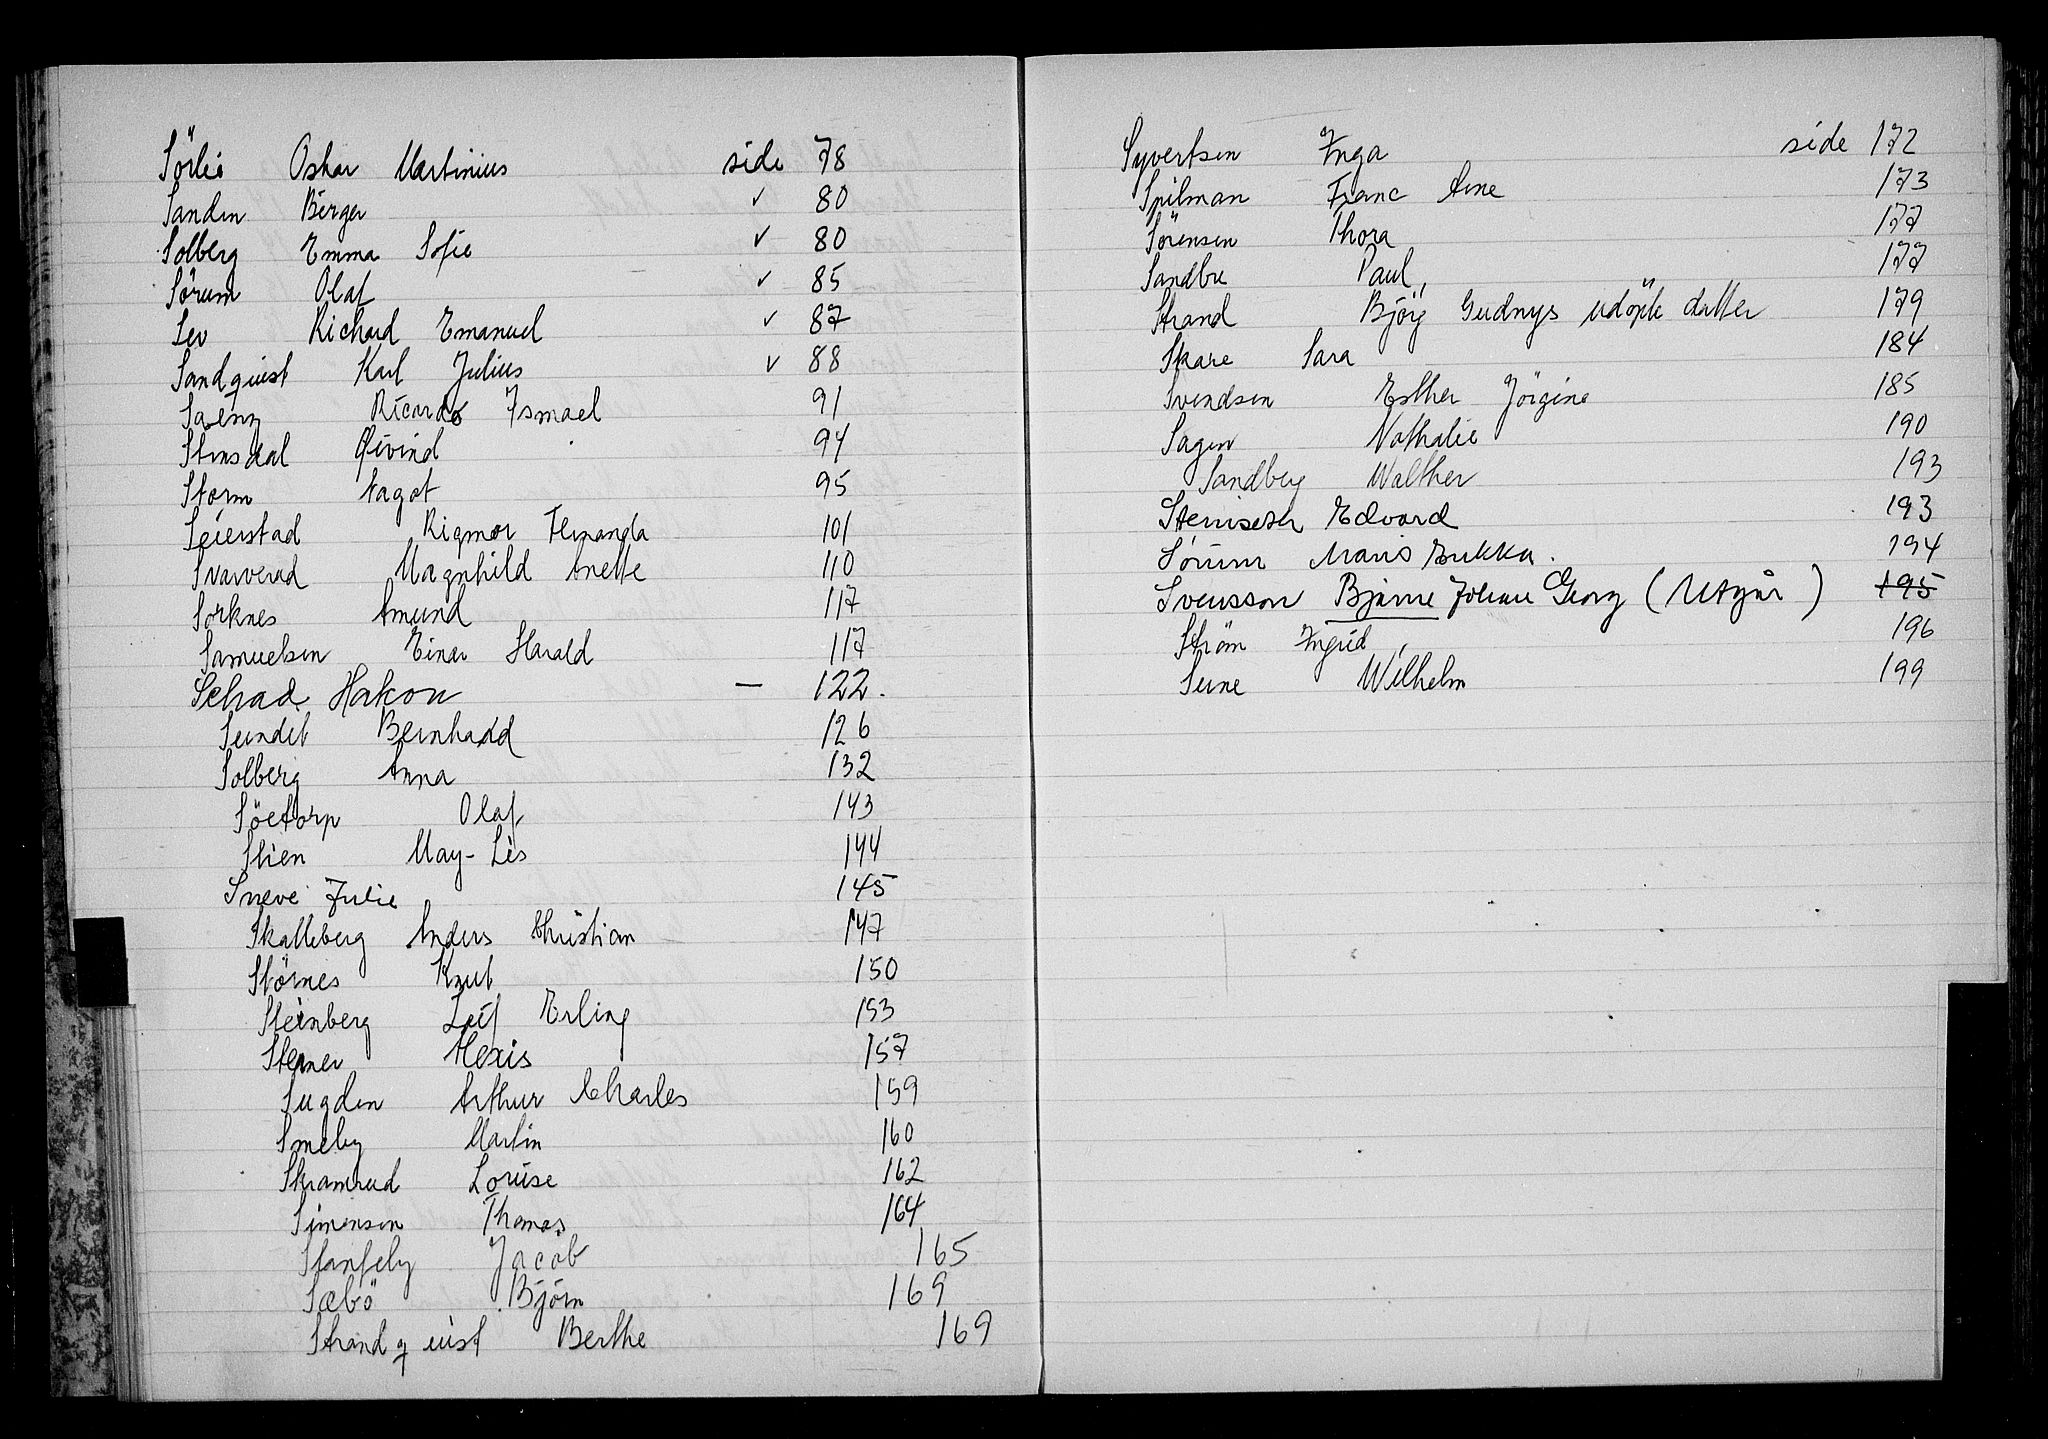 Sörlie Oskar Martinius side 78
Sanden Birger ✓ 80
Solberg Emma Sofie ✓ 80
Sörum Olaf ✓ 85
Sev Richard Emanuel ✓ 87
Sandquist Karl Julius ✓ 88
Saenz Ricardo Ismael 91
Stensdal Øivind 94
Storm Aagot 95
Seierstad Rigmor Fernanda 101
Svarverud Magnhild Anette 110
Sorknes Amund 117
Samuelsen Einar Harald 117
Schad Hakon — 122.
Sundet Bernhard 126
Solberg Anna 132
Söetorp Olaf 143
Stien May-Lis 144
Sneve Julie 145
Skalleberg Anders Christian 147
Störnes Knut 150
Steinberg Leif Erling 153
Stener Alexis 157
Sugden Arthur Charles 159
Smeby Martin 160
Skramrud Louise 162
Simensen Thomas 164
Jacob 165
Sæbö Björn 169
Strandquist Berthe 169
Syvertsen Inga side 172
Spilman Franc Arne 173
Sörensen Thora 177
Sandbu Paul, 177
Strand Björg Gudnys udöpte datter 179
Skare Sara 184
Svendsen Esther Jörgine 185
Sagen Nathalie 190
Sandberg Walther 193
Steinseter Edvard 193
Sörum 194
Svensson Bjarne Johan Georg (Utgår) 195
Ström Ingrid, 196
Sune Wilhelm 199